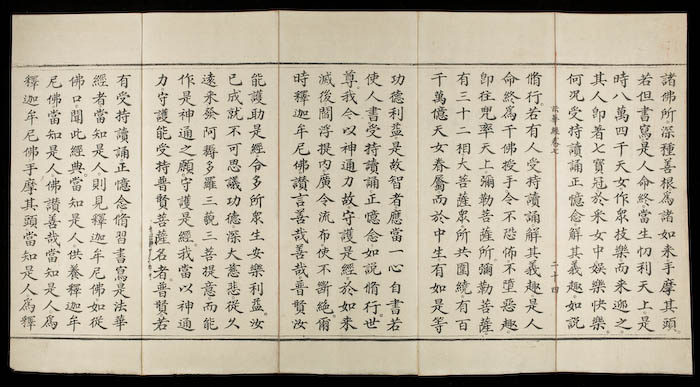 諸佛所深種善根爲諸如来手摩其頭
若但書寫是人命終當生忉利天上是
時八萬四千天女作衆技樂而来迎之
其人卽著七寶冠於采女中娛樂快樂
何况受持讀誦正憶念解其義趣如說
法華經卷七
二十四
脩行若有人受持讀誦解其義趣是人
命終爲千佛授手令不恐怖不墮惡趣
卽往兜率天上彌勒菩薩所彌勒菩薩
有三十二相大菩薩衆所共圍繞有百
千萬億天女眷屬而於中生有如是等
功德利益是故智者應當一心自書若
使人書受持讀誦正憶念如說脩行世
尊我今以神通力故守護是經於如来
滅後閻浮提内廣令流布使不斷絶爾
時釋迦牟尼佛讚言善哉善哉普賢汝
能護助是經令多所衆生安樂利益汝
已成就不可思議功德深大慈悲從久
遠来發阿耨多羅三藐三菩提意而能
作是神通之願守護是經我當以神通
力守護能受持普賢菩薩名者普賢若
有受持讀誦正憶念脩習書寫是法華
經者當知是人則見釋迦牟尼佛如從
佛口聞此經典當知是人供養釋迦牟
尼佛當知是人佛讚善哉當知是人爲
釋迦牟尼佛手摩其頭當知是人爲釋